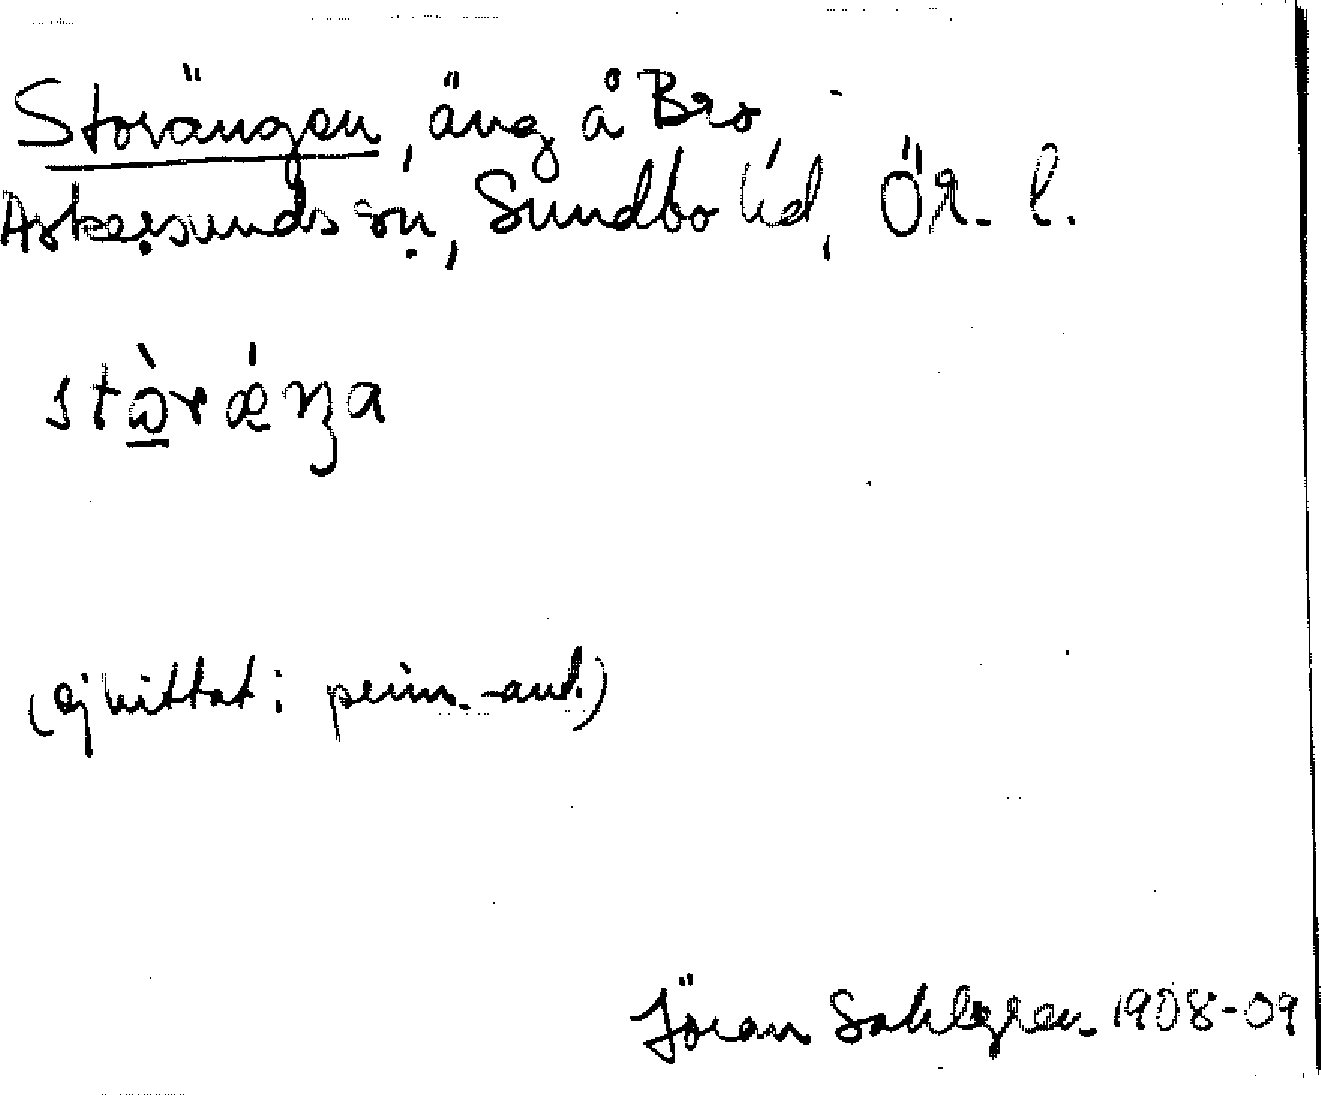 Storängen, äng å Bro,
Askersunds sn, Sundbo hd, Ör. l.
stò̲rǽŋa
(ej hittat i prim.-ant.)
Jöran Sahlgren 1908-09